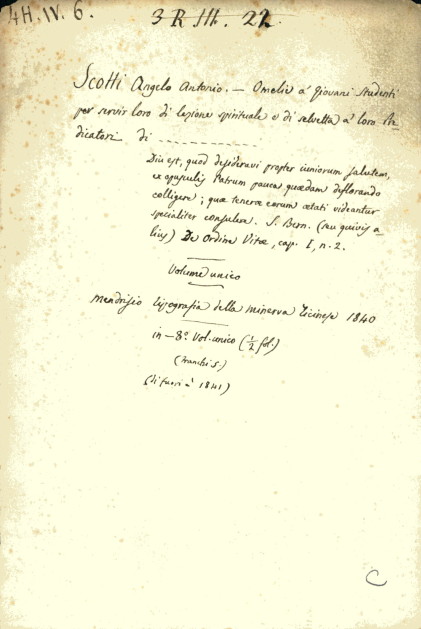 4H.IV.6.
3 R III. 22.
Scotti Angelo Antonio. — Omelie a' Giovani Studenti
per servir loro di lezione spirituale e di selvetta a' loro Pre-
dicatori di - - - - - - - - - -
Diu est, quod desideravi propter iuniorum salutem,
ex opusculis Patrum pauca quædam deflorando
colligere; quæ teneræ eorum ætati videantur
specialiter consulere. S. Bern. (seu quivis a
lius) De Ordine Vitæ, cap. I, n. 2.
Volume unico
Mendrisio tipografia della minerva Ticinese 1840
in-8º. Vol. unico (½ fol.)
(franchi 5.)
(di fuori à 1841)
C